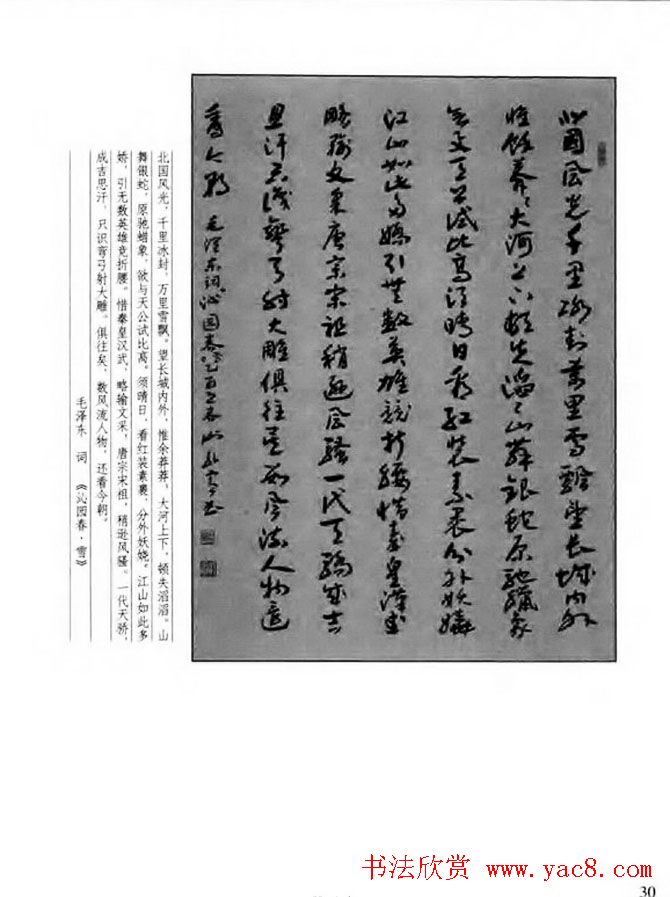 北國風光千里冰封萬里雪飄望長城内外
惟餘莽〻大河上下頓失滔〻山舞銀蛇原馳蠟象
欲与天公試比高須晴日看紅裝素裹分外妖嬈
江山如此多嬌引無數英雄競折腰惜秦皇漢武
略輸文采唐宗宋祖稍遜風騷一代天驕成吉
思汗只識彎弓射大雕俱往矣數風流人物還
看今朝 毛澤東詞沁園春雪乙酉之春
北国风光，千里冰封，万里雪飘。望长城内外，惟余莽莽，大河上下，顿失滔滔。山
舞银蛇，原驰蜡象，欲与天公试比高。须晴日，看红装素裹，分外妖娆。江山如此多
娇，引无数英雄竞折腰。惜秦皇汉武，略输文采，唐宗宋祖，稍逊风骚。一代天骄，
成吉思汗，只识弯弓射大雕。俱往矣，数风流人物，还看今朝。
毛泽东 词 《沁园春·雪》
书法欣赏 www.yac8.com
30